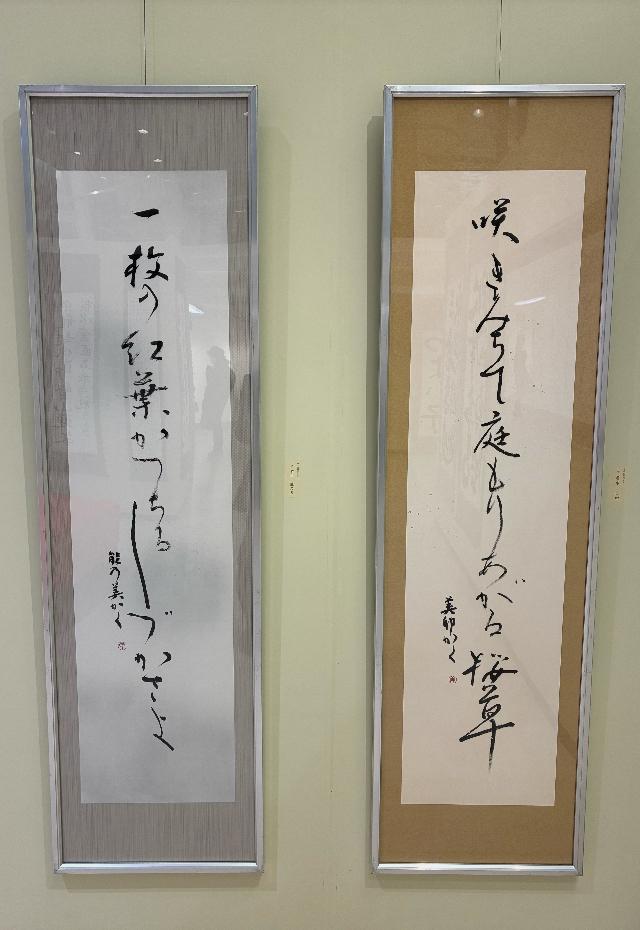 咲きみちて庭もりあがる桜草
かく
一枚の紅葉かつちるしづかさよ
能乃美かく